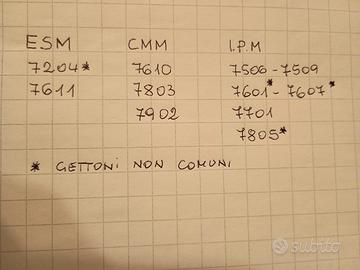 ESM CMM I.P.M
7204* 7610 7506-7509
7611 7803 7601*-7607*
7902 7701
7805*
* GETTONI NON COMUNI
subito